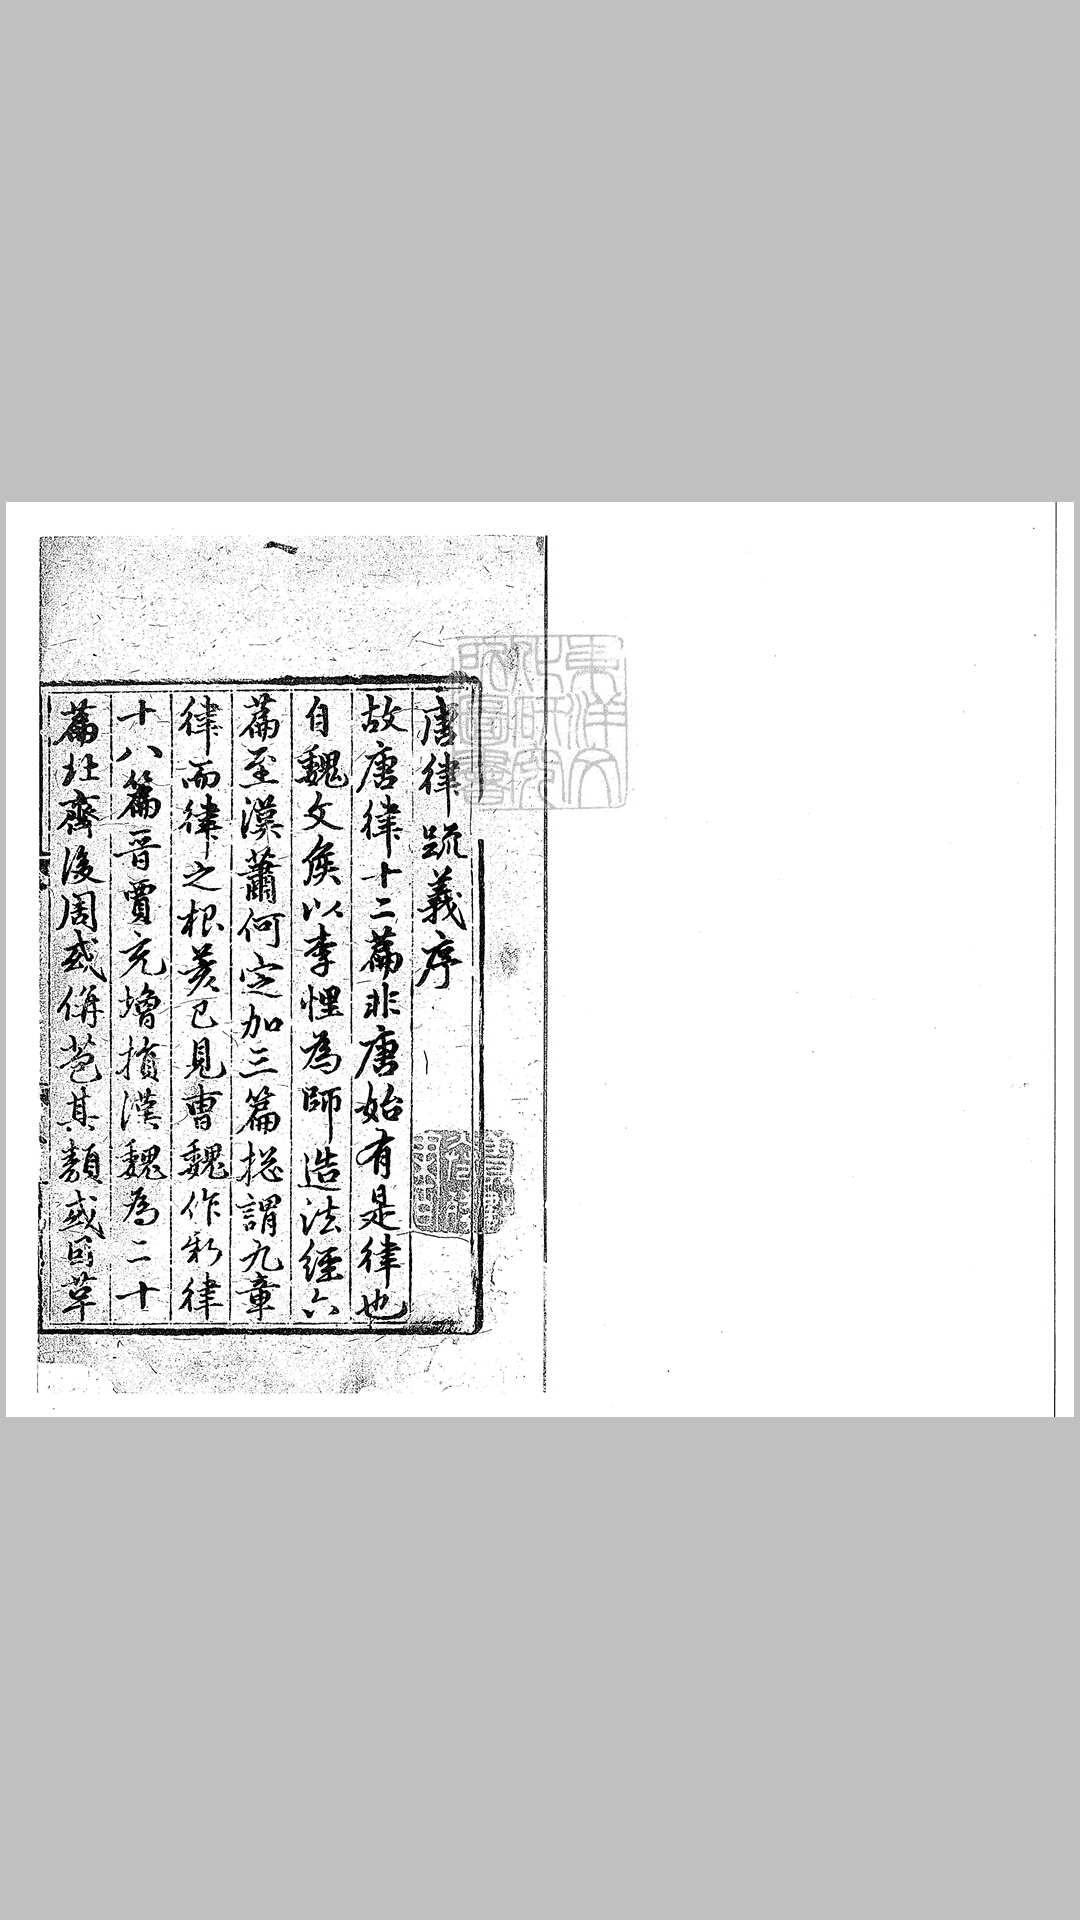 唐律疏義序
故唐律十二篇非唐始有是律也
自魏文侯以李悝為師造法經六
篇至漢蕭何定加三篇揔謂九章
律而律之根荄已見曹魏作新律
十八篇晋賈充增損漢魏為二十
篇北齊後周或併苞其類或因革
東洋文化研究所圖書